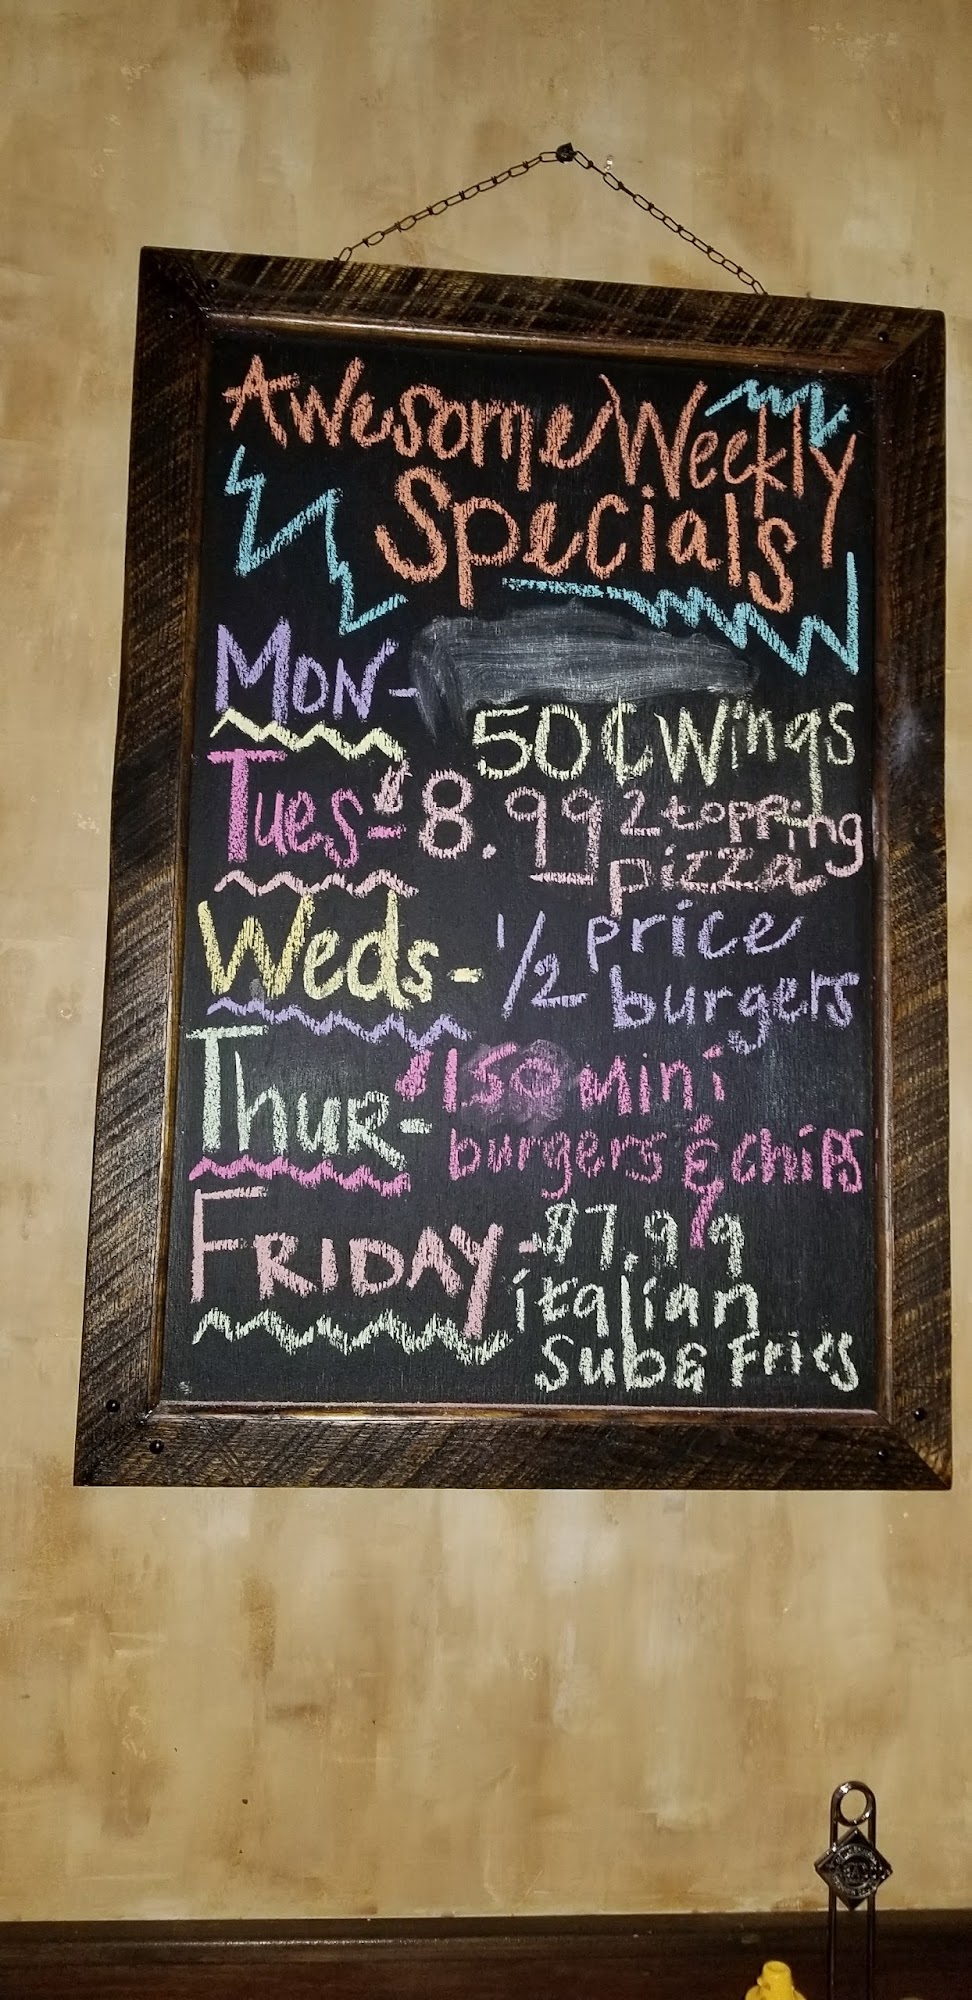 Awesome Weekly
Specials
Mon-
50¢ Wings
Tues- $8.99 2 topping
pizza
Weds- 1/2 price
burgers
Thur- $150 mini
burgers & chips
Friday- $7.99
italian
Sub & Fries